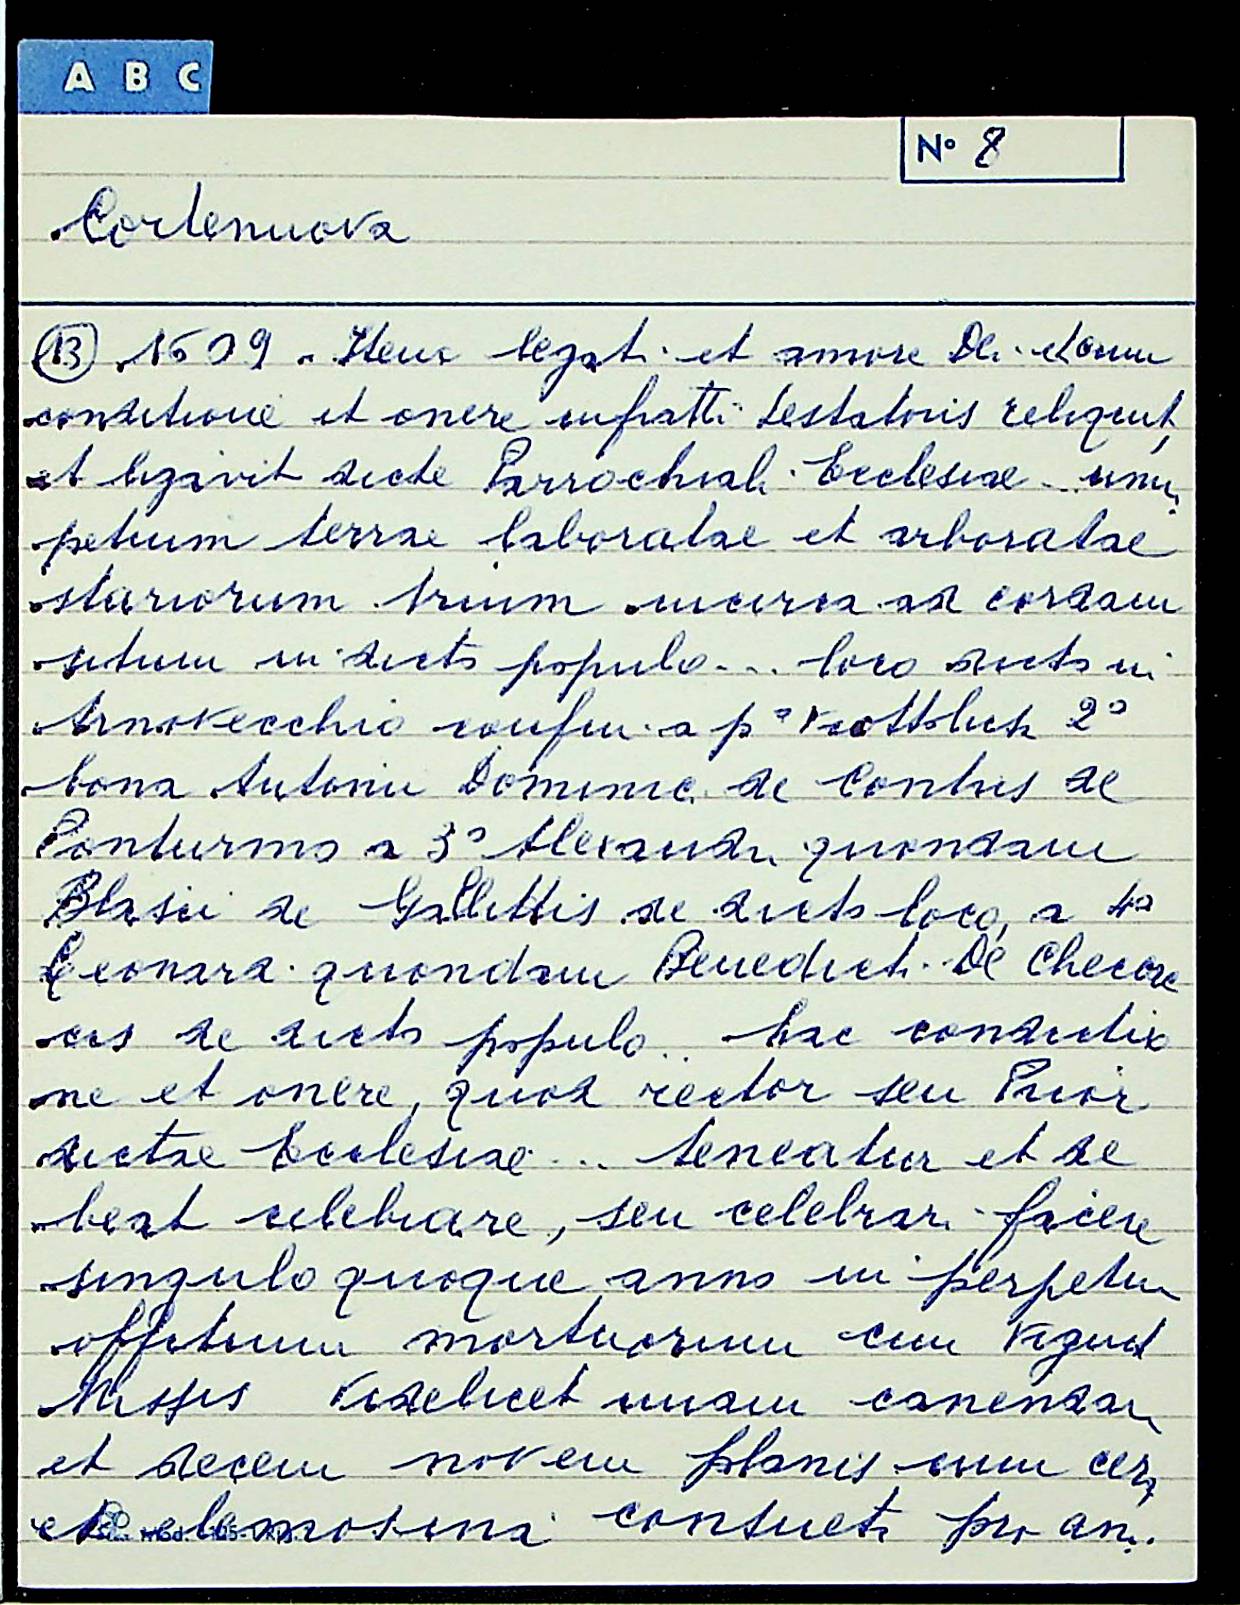 A B C
N° 8
Cortenuova
(13) 1609. Item legat. et amore Dei. et cum
conditione et onere infratti testatoris reliquit,
et legavit dicte Parrochial. Ecclesiae .. unu,
petium terrae laboratae et arboratae
stariorum trium incirca ad cordam
situm in dicto populo... loco dicto in
Arnovecchio confin. a p° viottolus 2°
bona Antonii Dominic. de Contris de
Ponturmo a 3° Alexandri quondam
Blasii de Gallettis de dicto loco, a 4°
Leonard. quondam Benedicti. De
cis de dicto populo.. hac conditio
ne et onere, quod rector seu Prior
dictae Ecclesiae... teneatur et de
beat celebrare, seu celebrari facere
singulo quoque anno in perpetu
offitium mortuorum cum Vigint
Missis videlicet unam canendam
et decem novem planis cum cer,
et elemosina consueta pro an..